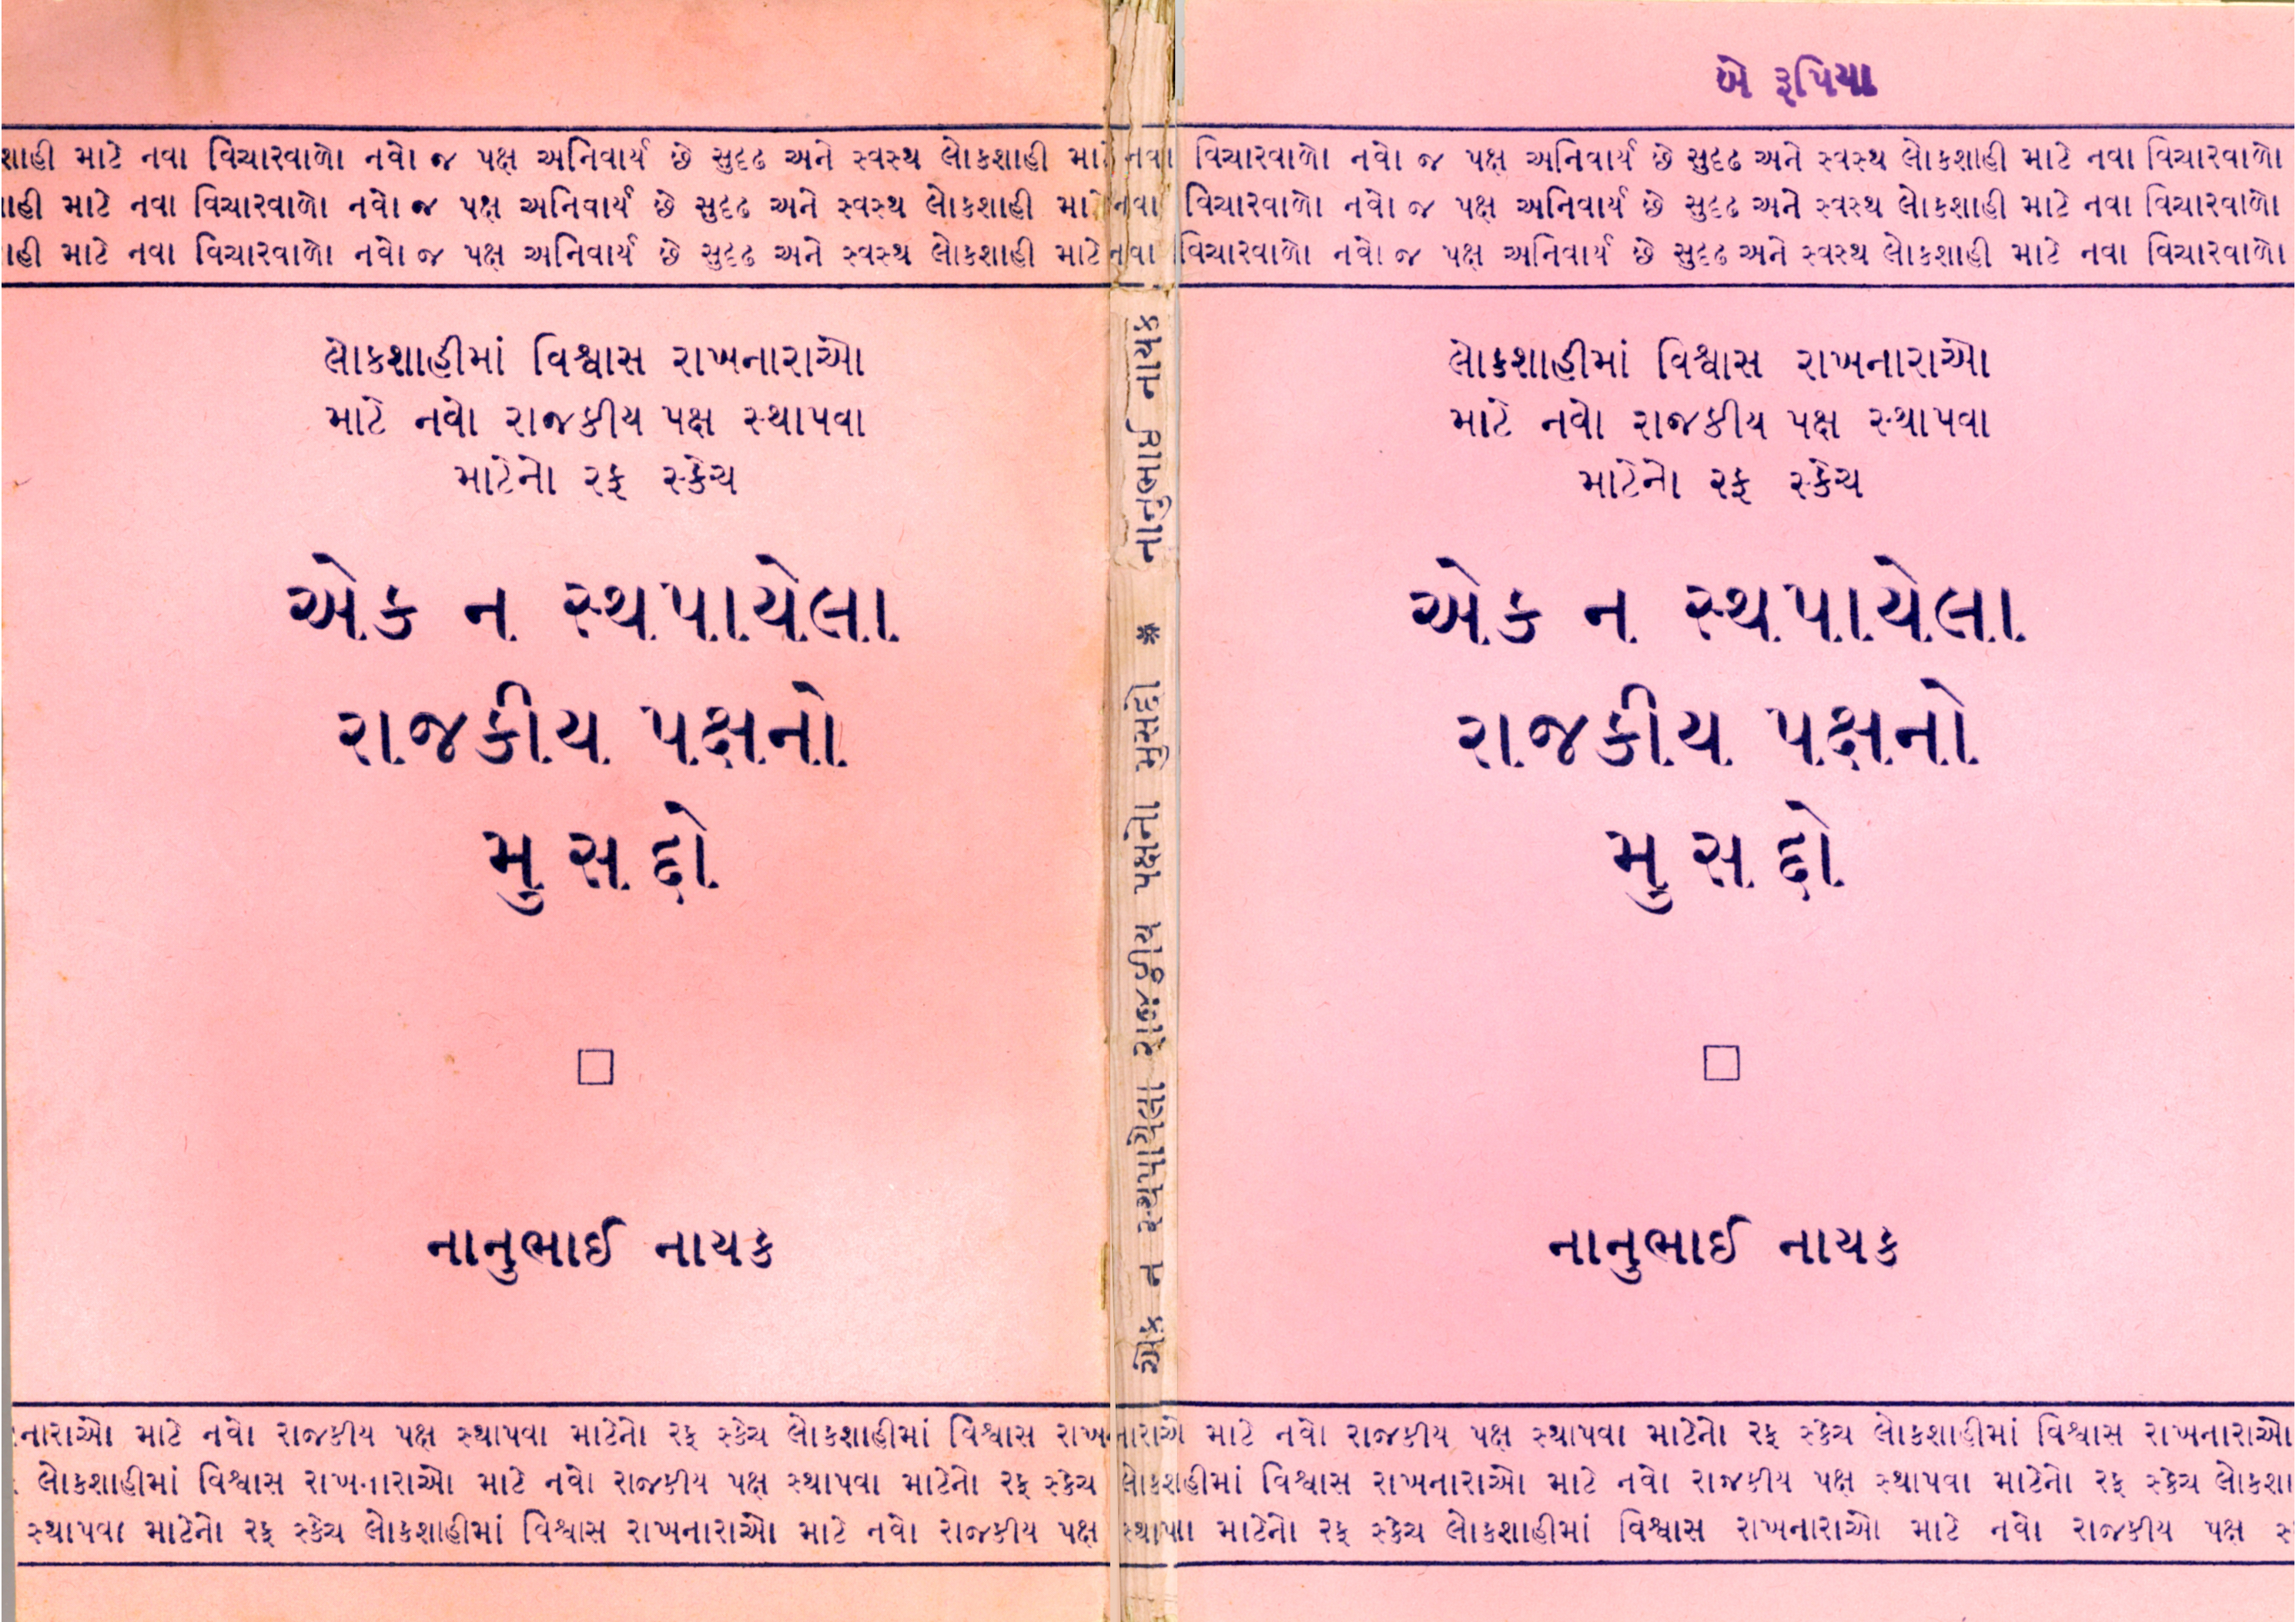 બે રૂપિયા
શાહી માટે નવા વિચારવાળો નવો જ પક્ષ અનિવાર્ય છે સુદૃઢ અને સ્વસ્થ લોકશાહી માટે નવા વિચારવાળો નવો જ પક્ષ અનિવાર્ય છે સુદૃઢ અને સ્વસ્થ લોકશાહી માટે નવા વિચારવાળો
ાહી માટે નવા વિચારવાળો નવો જ પક્ષ અનિવાર્ય છે સુદૃઢ અને સ્વસ્થ લોકશાહી મા નવા વિચારવાળો નવો જ પક્ષ અનિવાર્ય છે સુદૃઢ અને સ્વસ્થ લોકશાહી માટે નવા વિચારવાળો
ાહી માટે નવા વિચારવાળો નવો જ પક્ષ અનિવાર્ય છે સુદૃઢ અને સ્વસ્થ લોકશાહી માટે નવા વિચારવાળો નવો જ પક્ષ અનિવાર્ય છે સુદૃઢ અને સ્વસ્થ લોકશાહી માટે નવા વિચારવાળો
લોકશાહીમાં વિશ્વાસ રાખનારાઓ
માટે નવો રાજકીય પક્ષ સ્થાપવા
માટેનો રફ સ્કેચ
એક ન સ્થપાયેલા
રાજકીય પક્ષનો
મુસદ્દો
નાનુભાઈ નાયક
એક ન સ્થપાયેલા રાજકીય પક્ષનો મુસદ્દો * નાનુભાઈ નાયક
લોકશાહીમાં વિશ્વાસ રાખનારાઓ
માટે નવો રાજકીય પક્ષ સ્થાપવા
માટેનો રફ સ્કેચ
એક ન સ્થપાયેલા
રાજકીય પક્ષનો
મુસદ્દો
નાનુભાઈ નાયક
નારાઓ માટે નવો રાજકીય પક્ષ સ્થાપવા માટેનો રફ સ્કેચ લોકશાહીમાં વિશ્વાસ રાખનારાઓ માટે નવો રાજકીય પક્ષ સ્થાપવા માટેનો રફ સ્કેચ લોકશાહીમાં વિશ્વાસ રાખનારાઓ
લોકશાહીમાં વિશ્વાસ રાખનારાઓ માટે નવો રાજકીય પક્ષ સ્થાપવા માટેનો રફ સ્કેચ લોકશાહીમાં વિશ્વાસ રાખનારાઓ માટે નવો રાજકીય પક્ષ સ્થાપવા માટેનો રફ સ્કેચ લોકશા
સ્થાપવા માટેનો રફ સ્કેચ લોકશાહીમાં વિશ્વાસ રાખનારાઓ માટે નવો રાજકીય પક્ષ સ્થાપવા માટેનો રફ સ્કેચ લોકશાહીમાં વિશ્વાસ રાખનારાઓ માટે નવો રાજકીય પક્ષ સ્